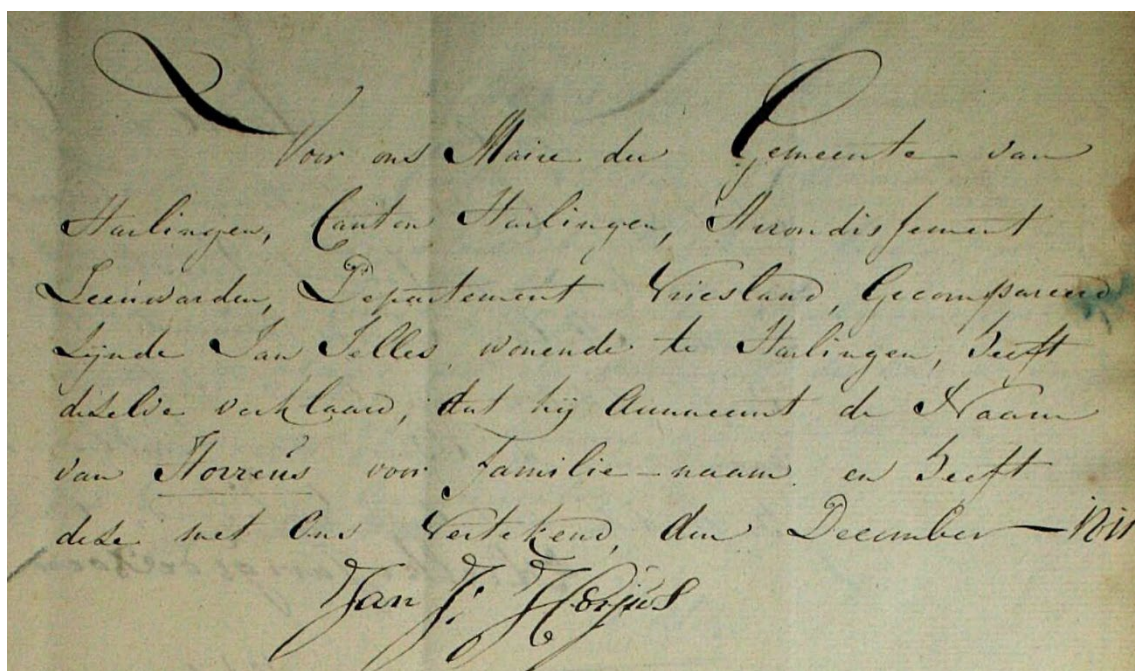 Voor ons Maire der Gemeente van
Harlingen, Canton Harlingen, Arrondissement
Leeuwarden, Departement Vriesland, Gecompareerd
Zijnde Jan Jelles, wonende te Harlingen, heeft
dezelve verklaard, dat hij Aanneemt de Naam
van Horreüs voor familie-naam en heeft
deze met Ons Vertekend, den December 1811
Jan J. Horjus